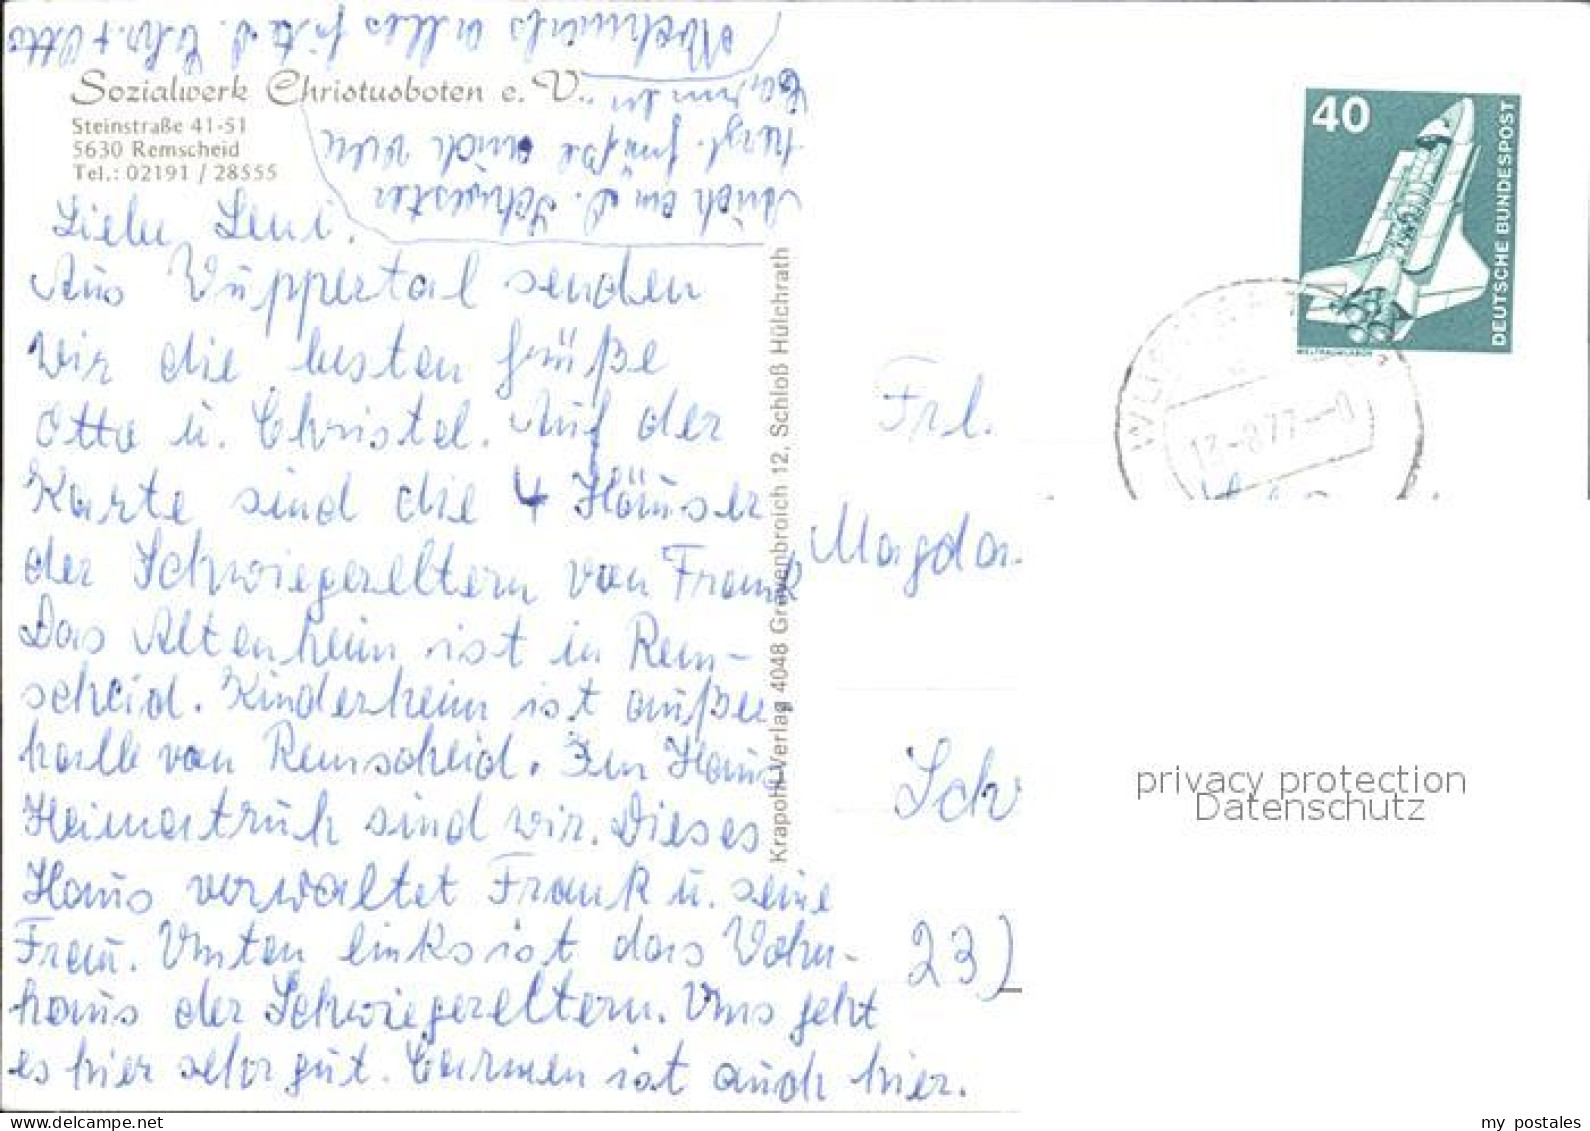 Sozialwerk Christusboten e. V.
Steinstraße 41-51
5630 Remscheid
Tel.: 02191 / 28555
Liebe Leni.
Aus Wuppertal senden
wir die besten Grüße
Otto u. Christel. Auf der
Karte sind die 4 Häuser
der Schwiegereltern von Frank
Das Altenheim ist in Rem-
scheid. Kinderheim ist außer-
halb von Remscheid. Im Haus
Heimatruh sind wir. Dieses
Haus verwaltet Frank u. seine
Frau. Unten links ist das Wohn-
haus der Schwiegereltern. Uns geht
es hier sehr gut. Carmen ist auch hier.
Auch an D. Schwester
herzl. Grüße auch von
Carmen.
Nochmals alles Chr. + Otto
Krapohl-Verlag 4048 Grevenbroich 12, Schloß Hülchrath
40
DEUTSCHE BUNDESPOST
-8.77--0
Frl.
Magda
Sch
23)
privacy protection
Datenschutz
my postales